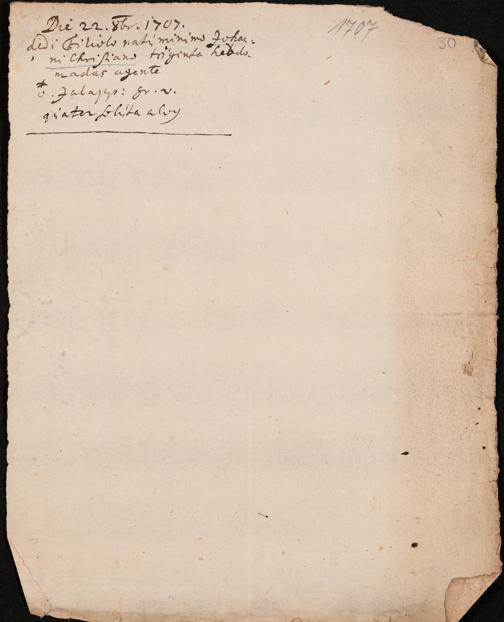 Die 22. 8br. 1707.
1707
30
dedi Filiolo nati minimo Johan=
ni Christiano triginta hebdo-
madas agente
Jalapp: gr. v.
quater soluta alvus